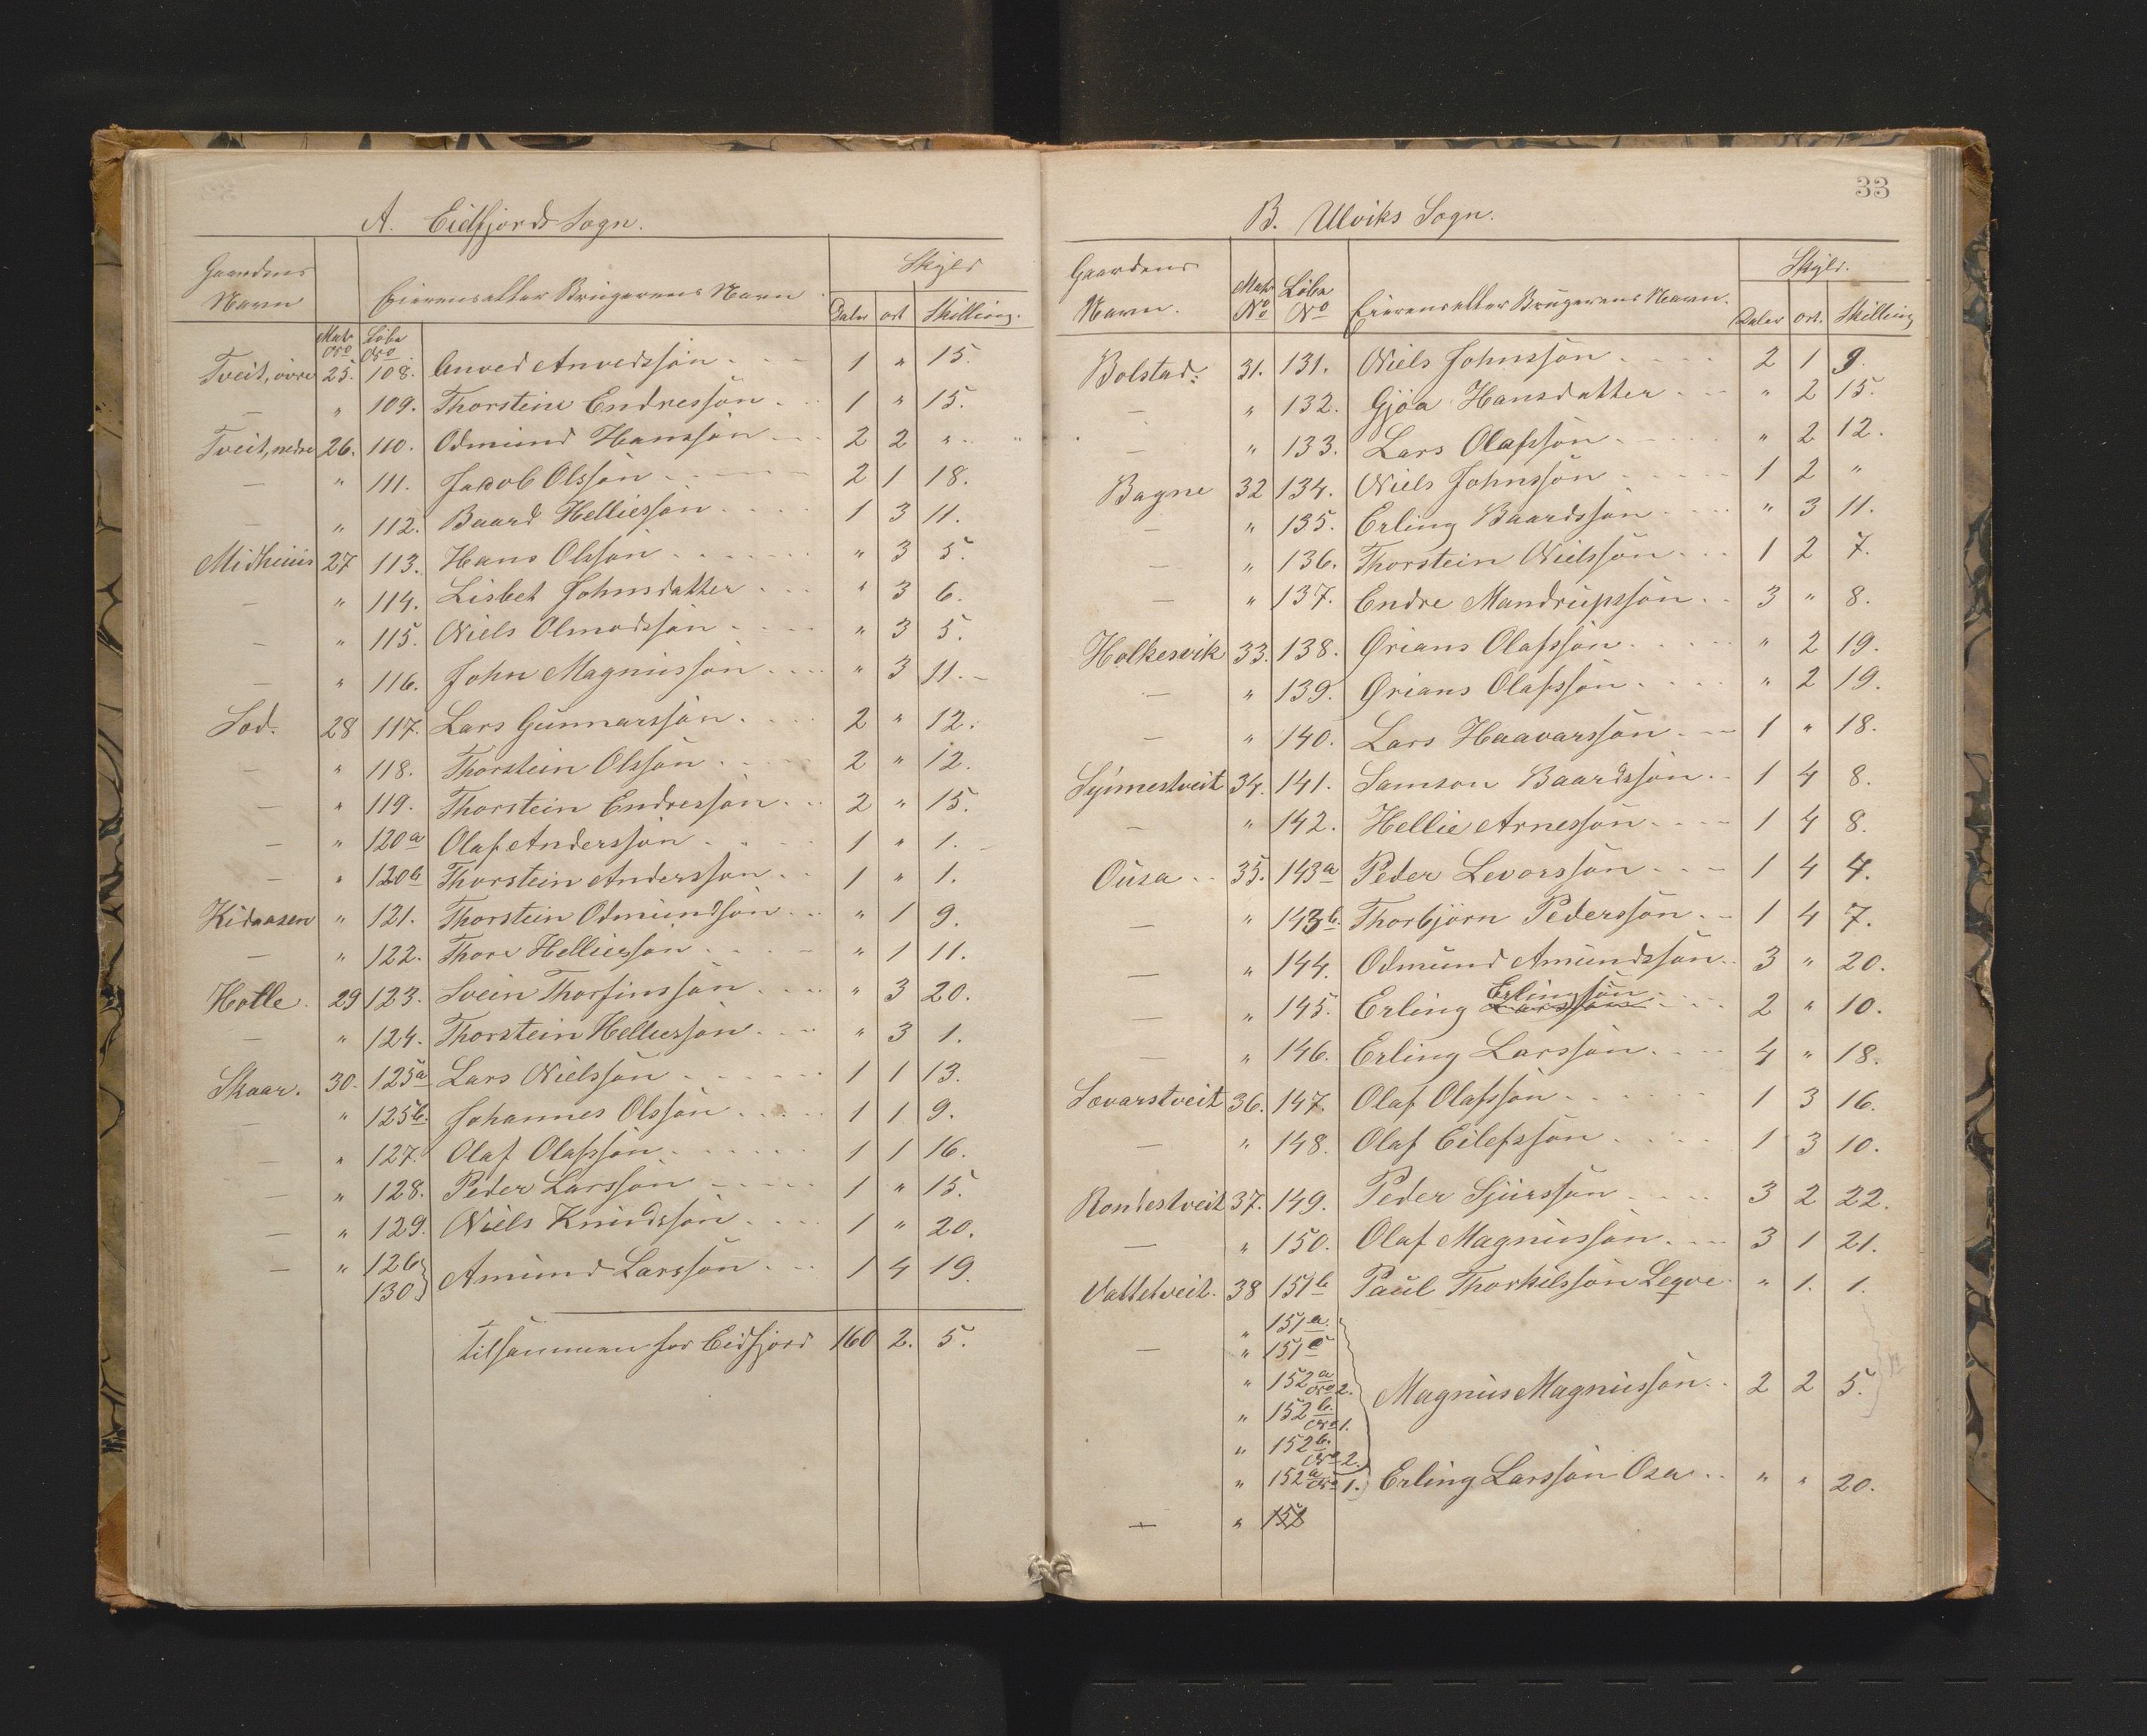 A. Eidfjords Sogn.
Gaardens Navn Mat No Löbe No Eierens eller Brugerens Navn Skyld Daler ort Skilling.
Tveit, övre 25. 108. Anved Anvedssön 1 " 15.
— " 109. Thorstein Endressön 1 " 15.
Tveit, nedre 26. 110. Odmund Hanssön 2 2 "
— " 111. Jacob Olssön 2 1 18.
— " 112. Baard Helliessön 1 3 11.
Midhuus 27 113. Hans Olssön " 3 5.
— " 114. Lisbet Johnsdatter " 3 6.
— " 115. Niels Olmodssön " 3 5.
— " 116. John Magnussön " 3 11.
Lod. 28 117. Lars Gunnarssön 2 " 12.
— " 118. Thorstein Olssön 2 " 12.
— " 119. Thorstein Endressön 2 " 15.
— " 120a Olaf Anderssön 1 " 1.
— " 120b Thorstein Anderssön 1 " 1.
Kidaasen " 121. Thorstein Odmundsön " 1 9.
— " 122. Thore Helliessön " 1 11.
Hotle. 29 123. Svein Thorfinssön " 3 20.
— " 124. Thorstein Helliessön " 3 1.
Skaar. 30. 125a Lars Nielssön 1 1 13.
— " 125b. Johannes Olssön 1 1 9.
— " 127. Olaf Olafssön 1 1 16.
— " 128. Peder Larssön 1 " 15.
— " 129. Niels Knudssön 1 " 20.
— " 126 130 } Amund Larssön 1 4 19.
tilsammen for Eidfjord 160 2. 5.
33
B. Ulviks Sogn.
Gaardens Navn. Mat No Löbe No Eierens eller Brugerens Navn. Skyld. Daler ort. Skilling
Bolstad: 31. 131. Niels Johnssön 2 1 9.
— " 132. Gjöa Hansdatter " 2 15.
— " 133. Lars Olafssön " 2 12.
Bagne 32 134. Niels Johnssön 1 2 "
— " 135. Erling Baardssön " 3 11.
— " 136. Thorstein Nielssön 1 2 7.
— " 137. Endre Mandrupssön 3 " 8.
Holkesvik 33. 138. Ørians Olafssön " 2 19.
— " 139. Ørians Olafssön " 2 19.
— " 140. Lars Haavarssön 1 " 18.
Synnestveit 34. 141. Samson Baardssön 1 4 8.
— " 142. Hellie Arnessön 1 4 8.
Ousa 35. 143a Peder Levorssön 1 4 4.
— " 143b. Thorbjörn Pederssön 1 4 7.
— " 144. Odmund Amundssön 3 " 20.
— " 145. Erling Larssön Erlingsön 2 " 10.
— " 146. Erling Larssön 4 " 18.
Lovarstveit 36. 147. Olaf Olafssön 1 3 16.
— " 148. Olaf Eilefssön 1 3 10.
Rondestveit 37. 149. Peder Sjurssön 3 2 22.
— " 150. Olaf Magnussön 3 1 21.
Vattetveit. 38 151b Paul Thorkilssön Leqve " 1. 1.
" 151a.
— " 151c
" 152a No 2. Magnus Magnussön 2 2 5.
" 152b. No 1.
" 152b. No 2.
" 152a No 1. Erling Larssön Osa " " 20.
— " 152